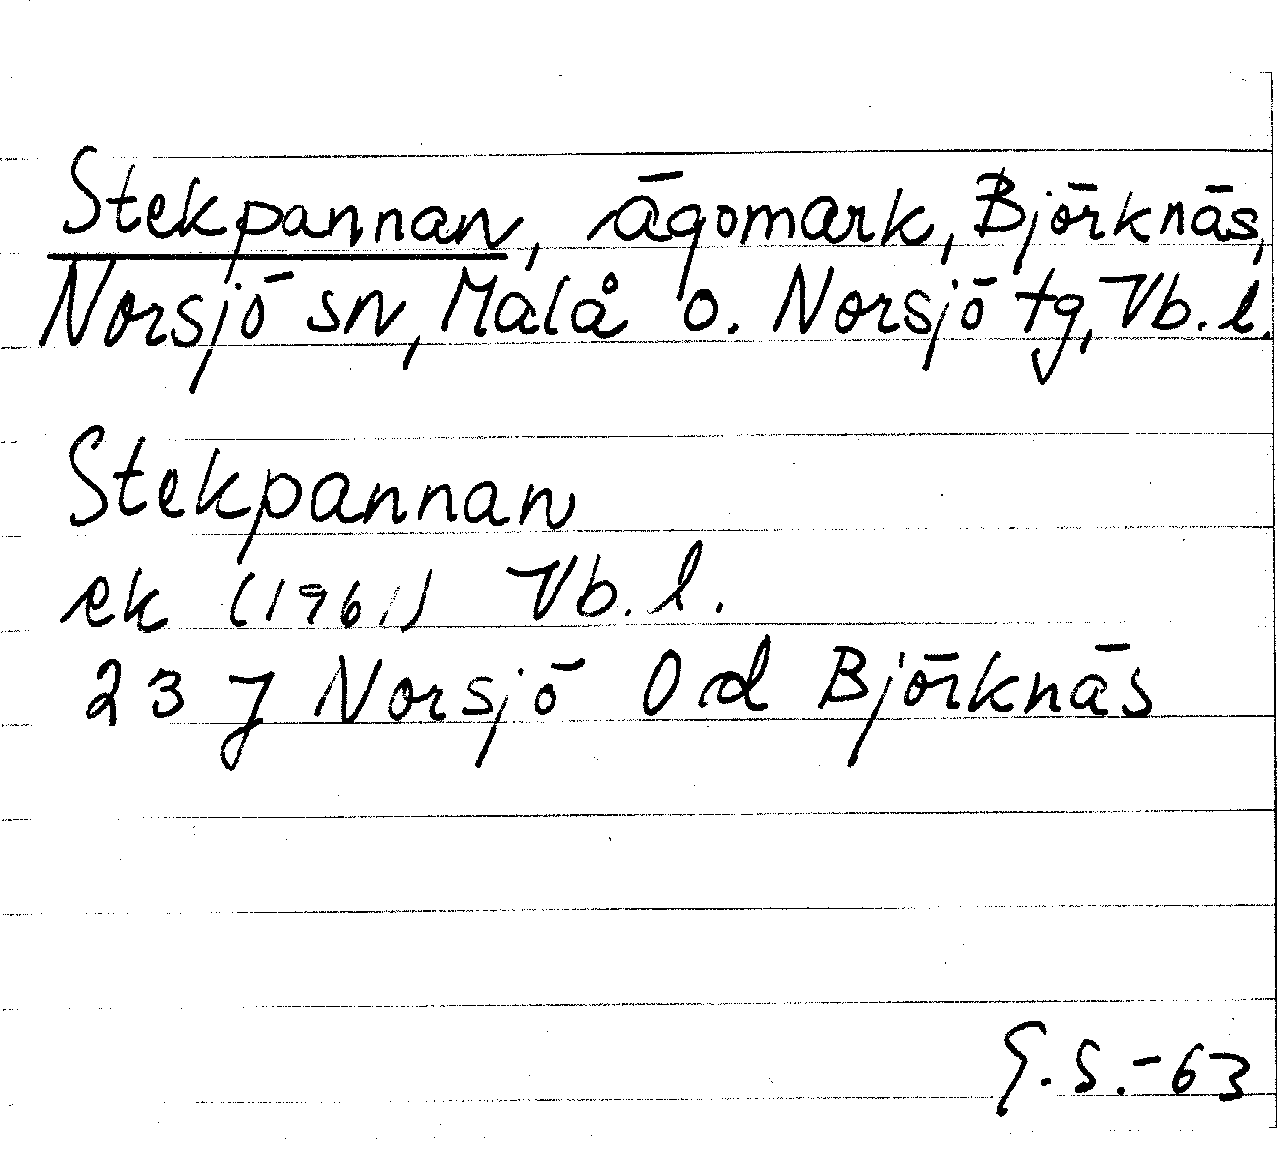 Stekpannan, ägomark, Björknäs,
Norsjö sn, Malå o. Norsjö tg, Vb. l.
Stekpannan
ek (1961) Vb. l.
23 J Norsjö 0d Björknäs
G.S.-63